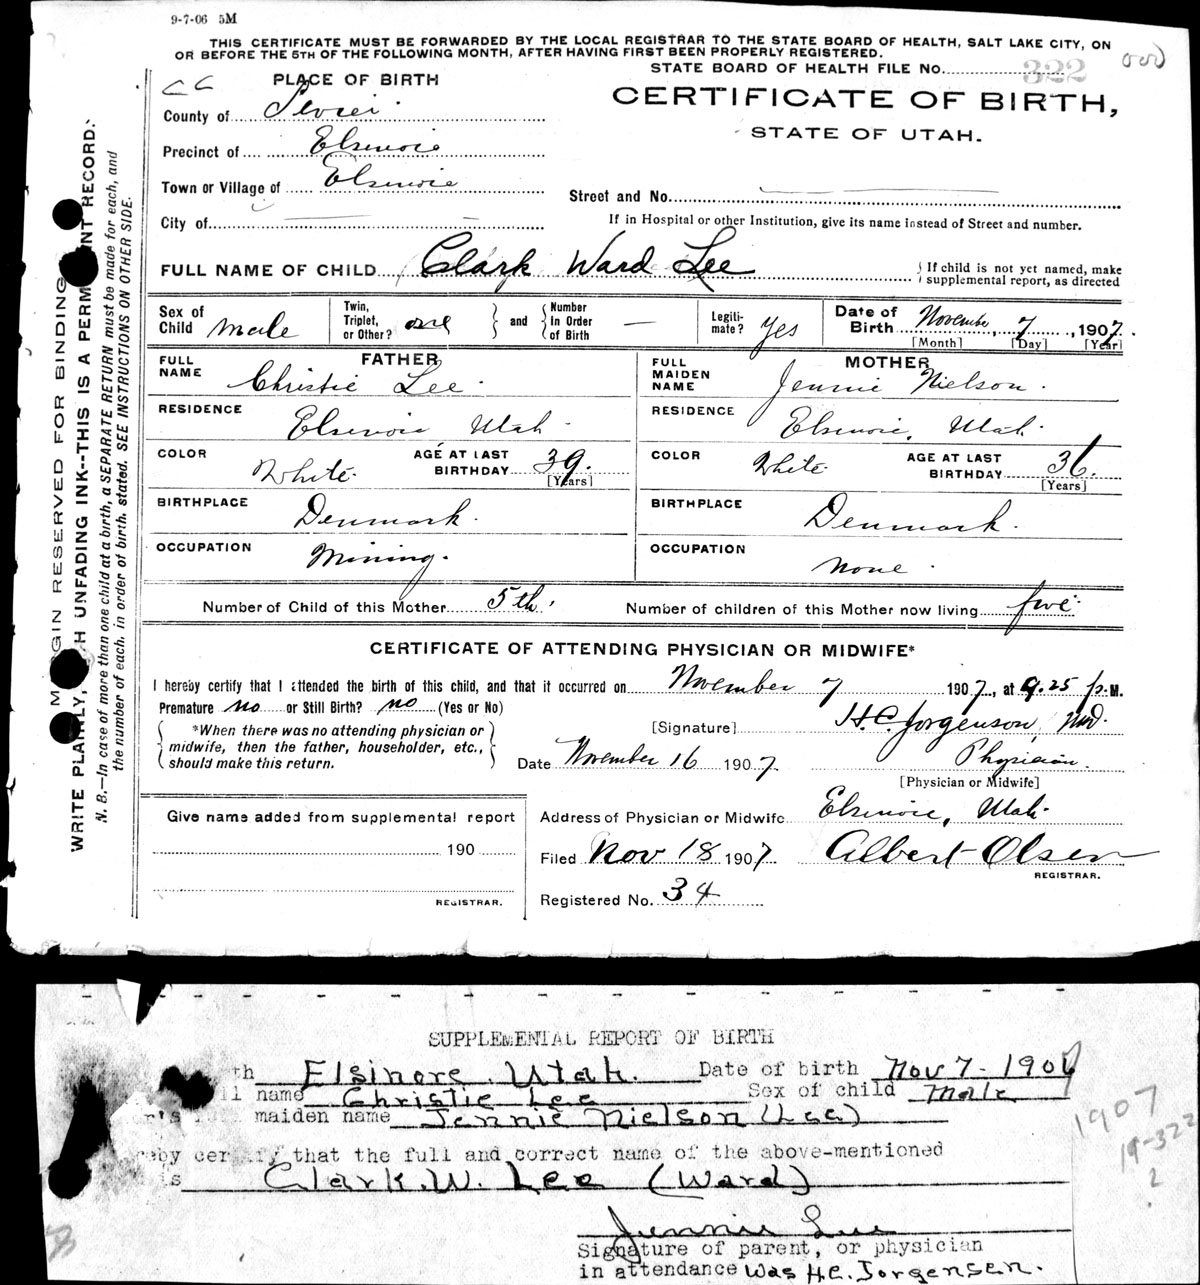 9-7-06 5M
THIS CERTIFICATE MUST BE FORWARDED BY THE LOCAL REGISTRAR TO THE STATE BOARD OF HEALTH, SALT LAKE CITY, ON
OR BEFORE THE 5TH OF THE FOLLOWING MONTH, AFTER HAVING FIRST BEEN PROPERLY REGISTERED.
STATE BOARD OF HEALTH FILE No. 322
PLACE OF BIRTH
CERTIFICATE OF BIRTH,
STATE OF UTAH.
County of Sevier.
Precinct of Elsinore
Town or Village of Elsinore
Street and No.
City of
If in Hospital or other Institution, give its name instead of Street and number.
FULL NAME OF CHILD Clark Ward Lee
If child is not yet named, make supplemental report, as directed
Sex of Child Male Twin, Triplet, or Other? one and Number In Order of Birth — Legiti-mate? Yes Date of Birth November, 7, 1907.
[Month] [Day] [Year]
FATHER
FULL NAME Christie Lee.
RESIDENCE Elsinore Utah.
COLOR White. AGE AT LAST BIRTHDAY 39. [Years]
BIRTHPLACE Denmark.
OCCUPATION Mining.
MOTHER
FULL MAIDEN NAME Jennie Nielson.
RESIDENCE Elsinore, Utah.
COLOR White. AGE AT LAST BIRTHDAY 36. [Years]
BIRTHPLACE Denmark.
OCCUPATION none.
Number of Child of this Mother 5th. Number of children of this Mother now living five.
CERTIFICATE OF ATTENDING PHYSICIAN OR MIDWIFE*
I hereby certify that I attended the birth of this child, and that it occurred on November 7 1907, at 9.25 p.M.
Premature no or Still Birth? no (Yes or No)
*When there was no attending physician or
midwife, then the father, householder, etc.,
should make this return.
[Signature] H.C. Jorgenson, MD.
Date November 16 1907. Physician.
[Physician or Midwife]
Address of Physician or Midwife Elsinore, Utah.
Give name added from supplemental report
190
REGISTRAR.
Filed Nov 18 1907. Albert Olsen
REGISTRAR.
Registered No. 34
MARGIN RESERVED FOR BINDING
WRITE PLAINLY, WITH UNFADING INK--THIS IS A PERMANENT RECORD.
N. B.—In case of more than one child at a birth, a SEPARATE RETURN must be made for each, and
the number of each, in order of birth, stated. SEE INSTRUCTIONS ON OTHER SIDE.
SUPPLEMENTAL REPORT OF BIRTH
th Elsinore, Utah. Date of birth Nov 7-1907
l name Christie Lee Sex of child Male
r's full maiden name Jennie Nielson (Lee)
reby certify that the full and correct name of the above-mentioned
is Clark. W. Lee (Ward)
Jennie Lee
Signature of parent, or physician
in attendance was H.C. Jorgensen.
1907
19-322
?